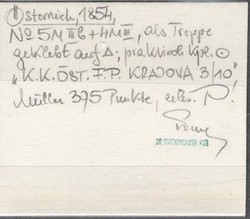 Österreich, 1854,
No 5M IIIb + 4M III, als Treppe
geklebt auf Δ; praktisch kpl. ⊙
„K.K. ÖST. F.P. KRAJOVA 3/10",
Müller 375 Punkte,